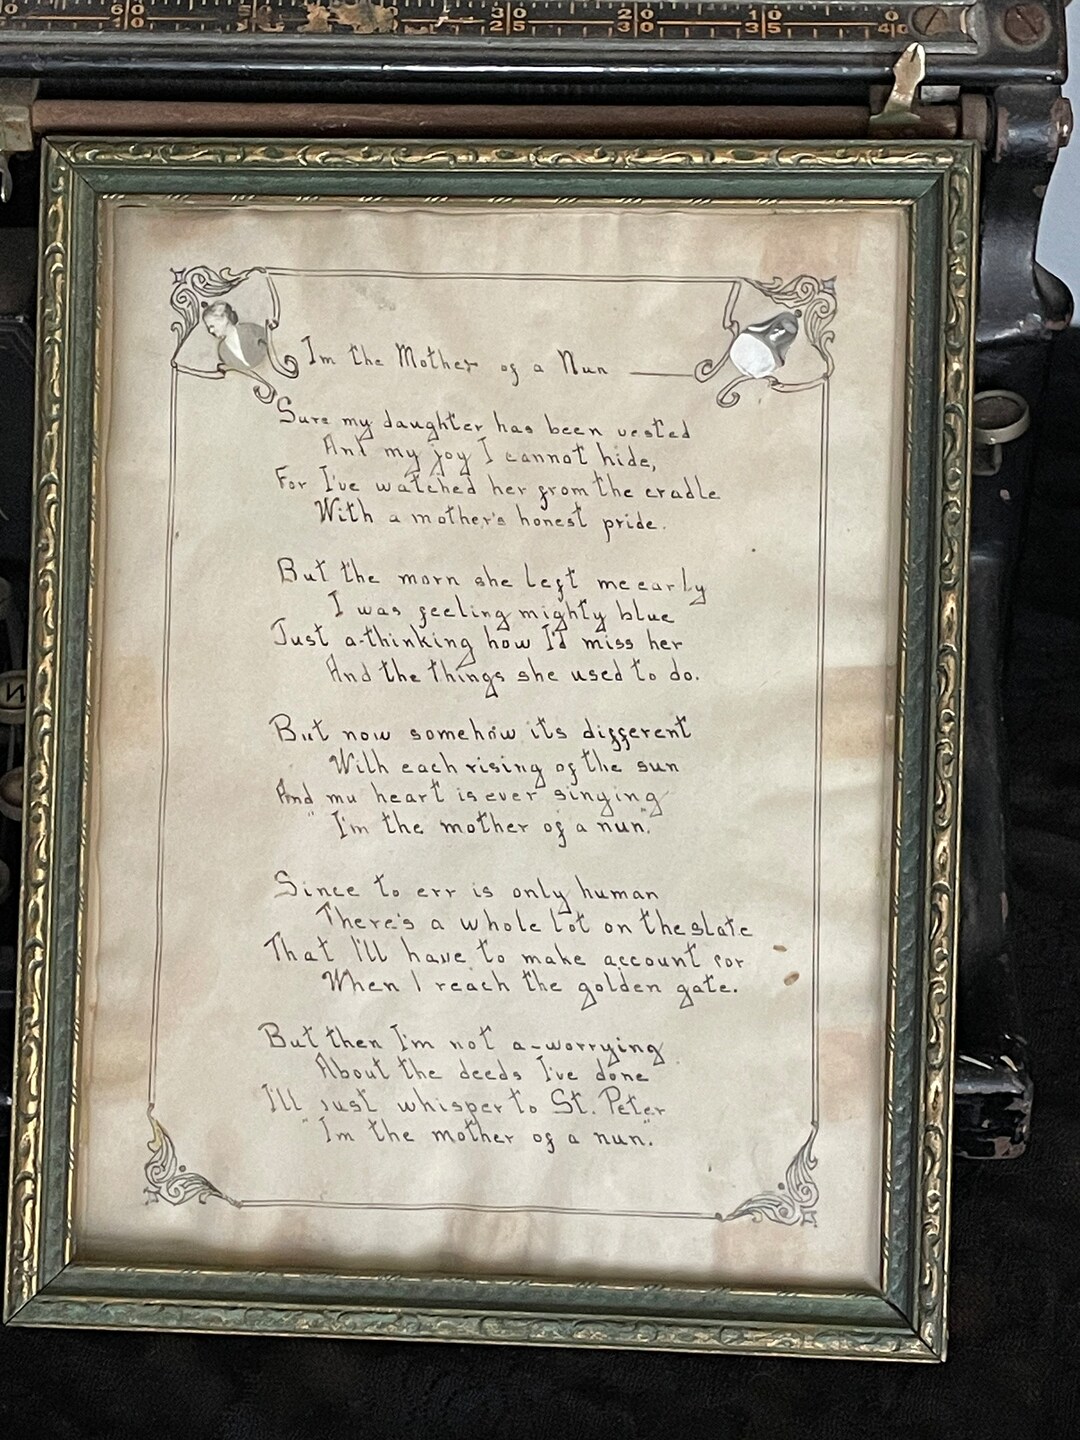 60
30
25
20
30
10
35
0
40
Im the Mother of a Nun
Sure my daughter has been vested
And my joy I cannot hide,
For I've watched her from the cradle
With a mother's honest pride.
But the morn she left me early
I was feeling mighty blue
Just a-thinking how I'd miss her
And the things she used to do.
But now somehow its different
With each rising of the sun
And my heart is ever singing
"I'm the mother of a nun."
Since to err is only human
There's a whole lot on the slate
That I'll have to make account for
When I reach the golden gate.
But then I'm not a-worrying
About the deeds I've done
I'll just whisper to St. Peter
"I'm the mother of a nun."
N